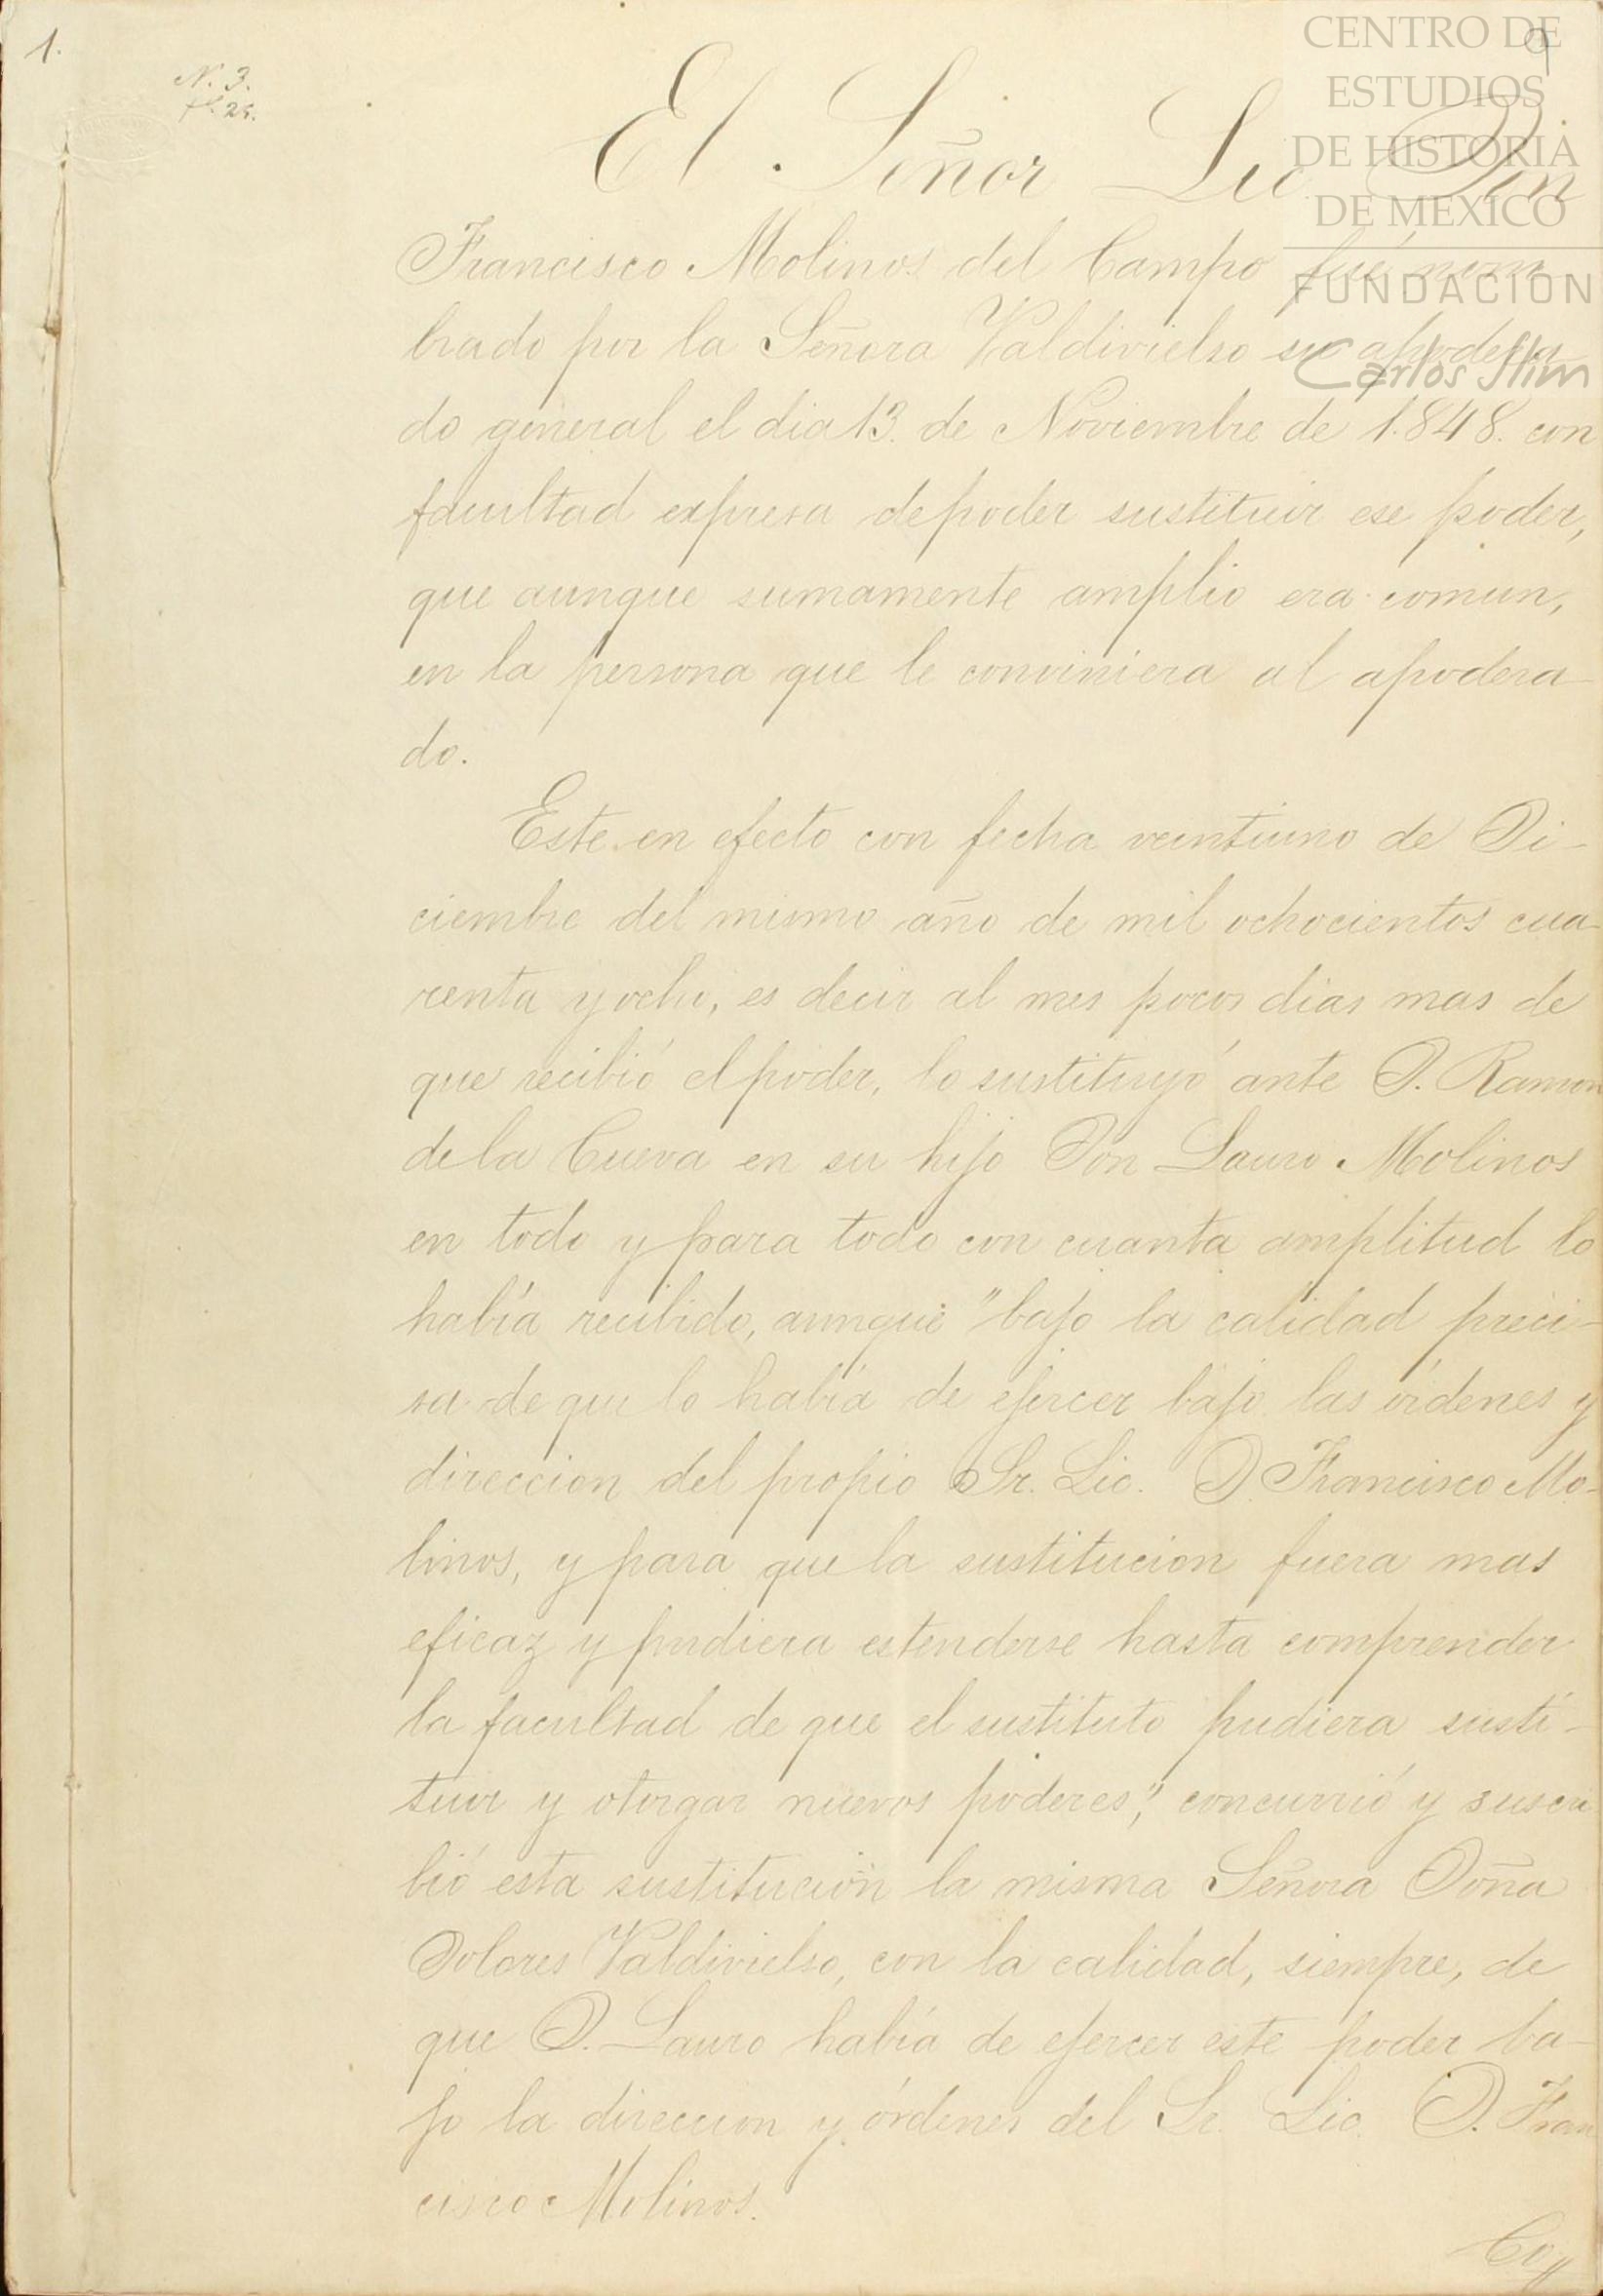 1.
N. 3.
CENTRO DE
ESTUDIOS
DE HISTORIA
DE MEXICO
FUNDACION
Carlos Slim
El Señor Lic Don
Francisco Molinos del Campo fué nom
brado por la Señora Valdivielso su apodera
do general el dia 13. de Noviembre de 1.848. con
facultad expresa de poder sustituir ese poder,
que aunque sumamente amplio era comun,
en la persona que le conviniera al apodera-
do.
Este en efecto con fecha veintiuno de Di-
ciembre del mismo año de mil ochocientos cua-
renta y ocho, es decir al mes pocos dias mas de
que recibió el poder, lo sustituyó ante D. Ramon
de la Cueva en su hijo Don Lauro Molinos
en todo y para todo con cuanta amplitud lo
había recibido, aunque "bajo la calidad preci-
sa de que lo había de ejercer bajo las órdenes y
direccion del propio Sr. Lic. D. Francisco Mo-
linos, y para que la sustitucion fuera mas
eficaz y pudiera estenderse hasta comprender
la facultad de que el sustituto pudiera susti-
tuir y otorgar nuevos poderes", concurrió y suscri
bió esta sustitución la misma Señora Doña
Dolores Valdivielso, con la calidad, siempre, de
que D. Lauro había de ejercer este poder ba-
jo la direccion y órdenes del Sr. Lic. D. Fran
cisco Molinos.